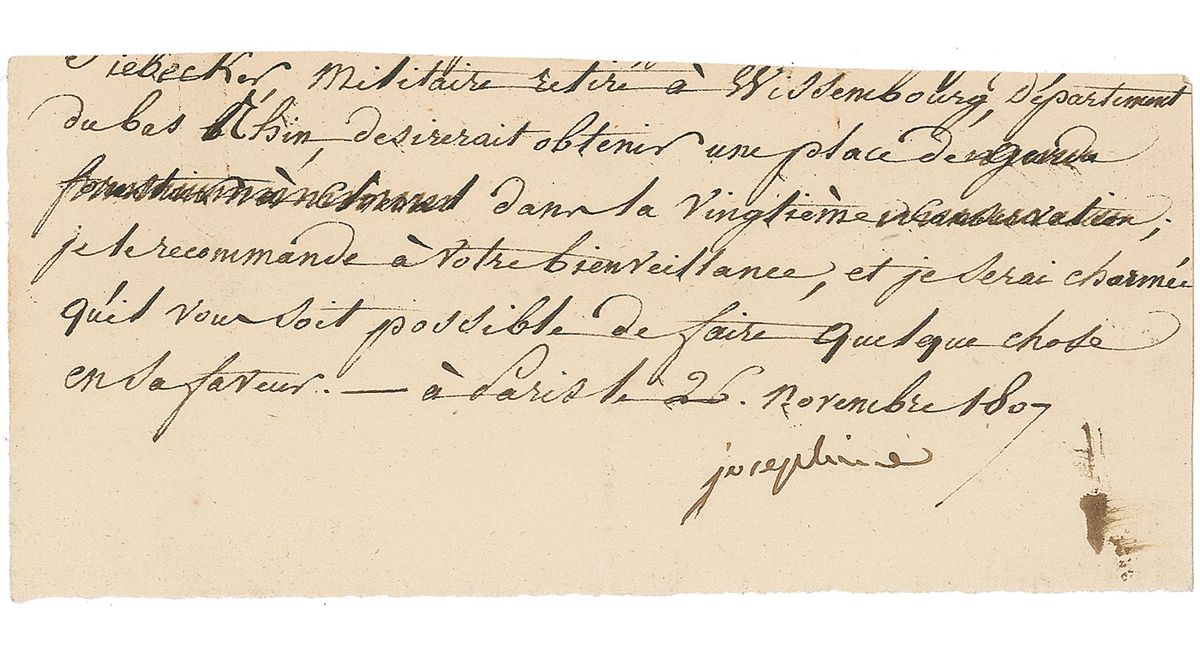 militaire retiré à Wissembourg, département
du bas Rhin, desirerait obtenir une place de garde
dans la vingtième conservation;
je le recommande à votre bienveillance, et je serai charmée
qu'il vous soit possible de faire quelque chose
en sa faveur. — à Paris le 26. novembre 1807
josephine